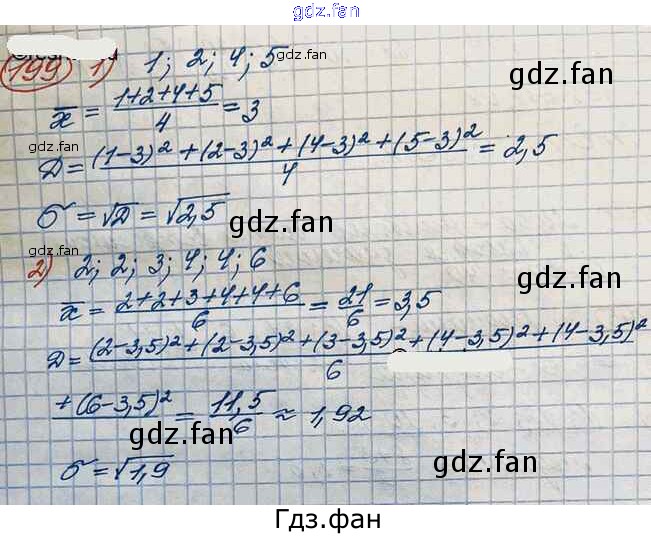 gdz.fan
gdz.fan
199 1) 1; 2; 4; 5
gdz.fan
x̄ = (1+2+4+5)/4 = 3
gdz.fan
gdz.fan
D = ((1-3)² + (2-3)² + (4-3)² + (5-3)²)/4 = 2,5
σ = √D = √2,5
gdz.fan
2) 2; 2; 3; 4; 4; 6
gdz.fan
x̄ = (2+2+3+4+4+6)/6 = 21/6 = 3,5
D = ((2-3,5)² + (2-3,5)² + (3-3,5)² + (4-3,5)² + (4-3,5)²
+ (6-3,5)²)/6 = 11,5/6 ≈ 1,92
gdz.fan
gdz.fan
σ = √1,9
Гдз.фан